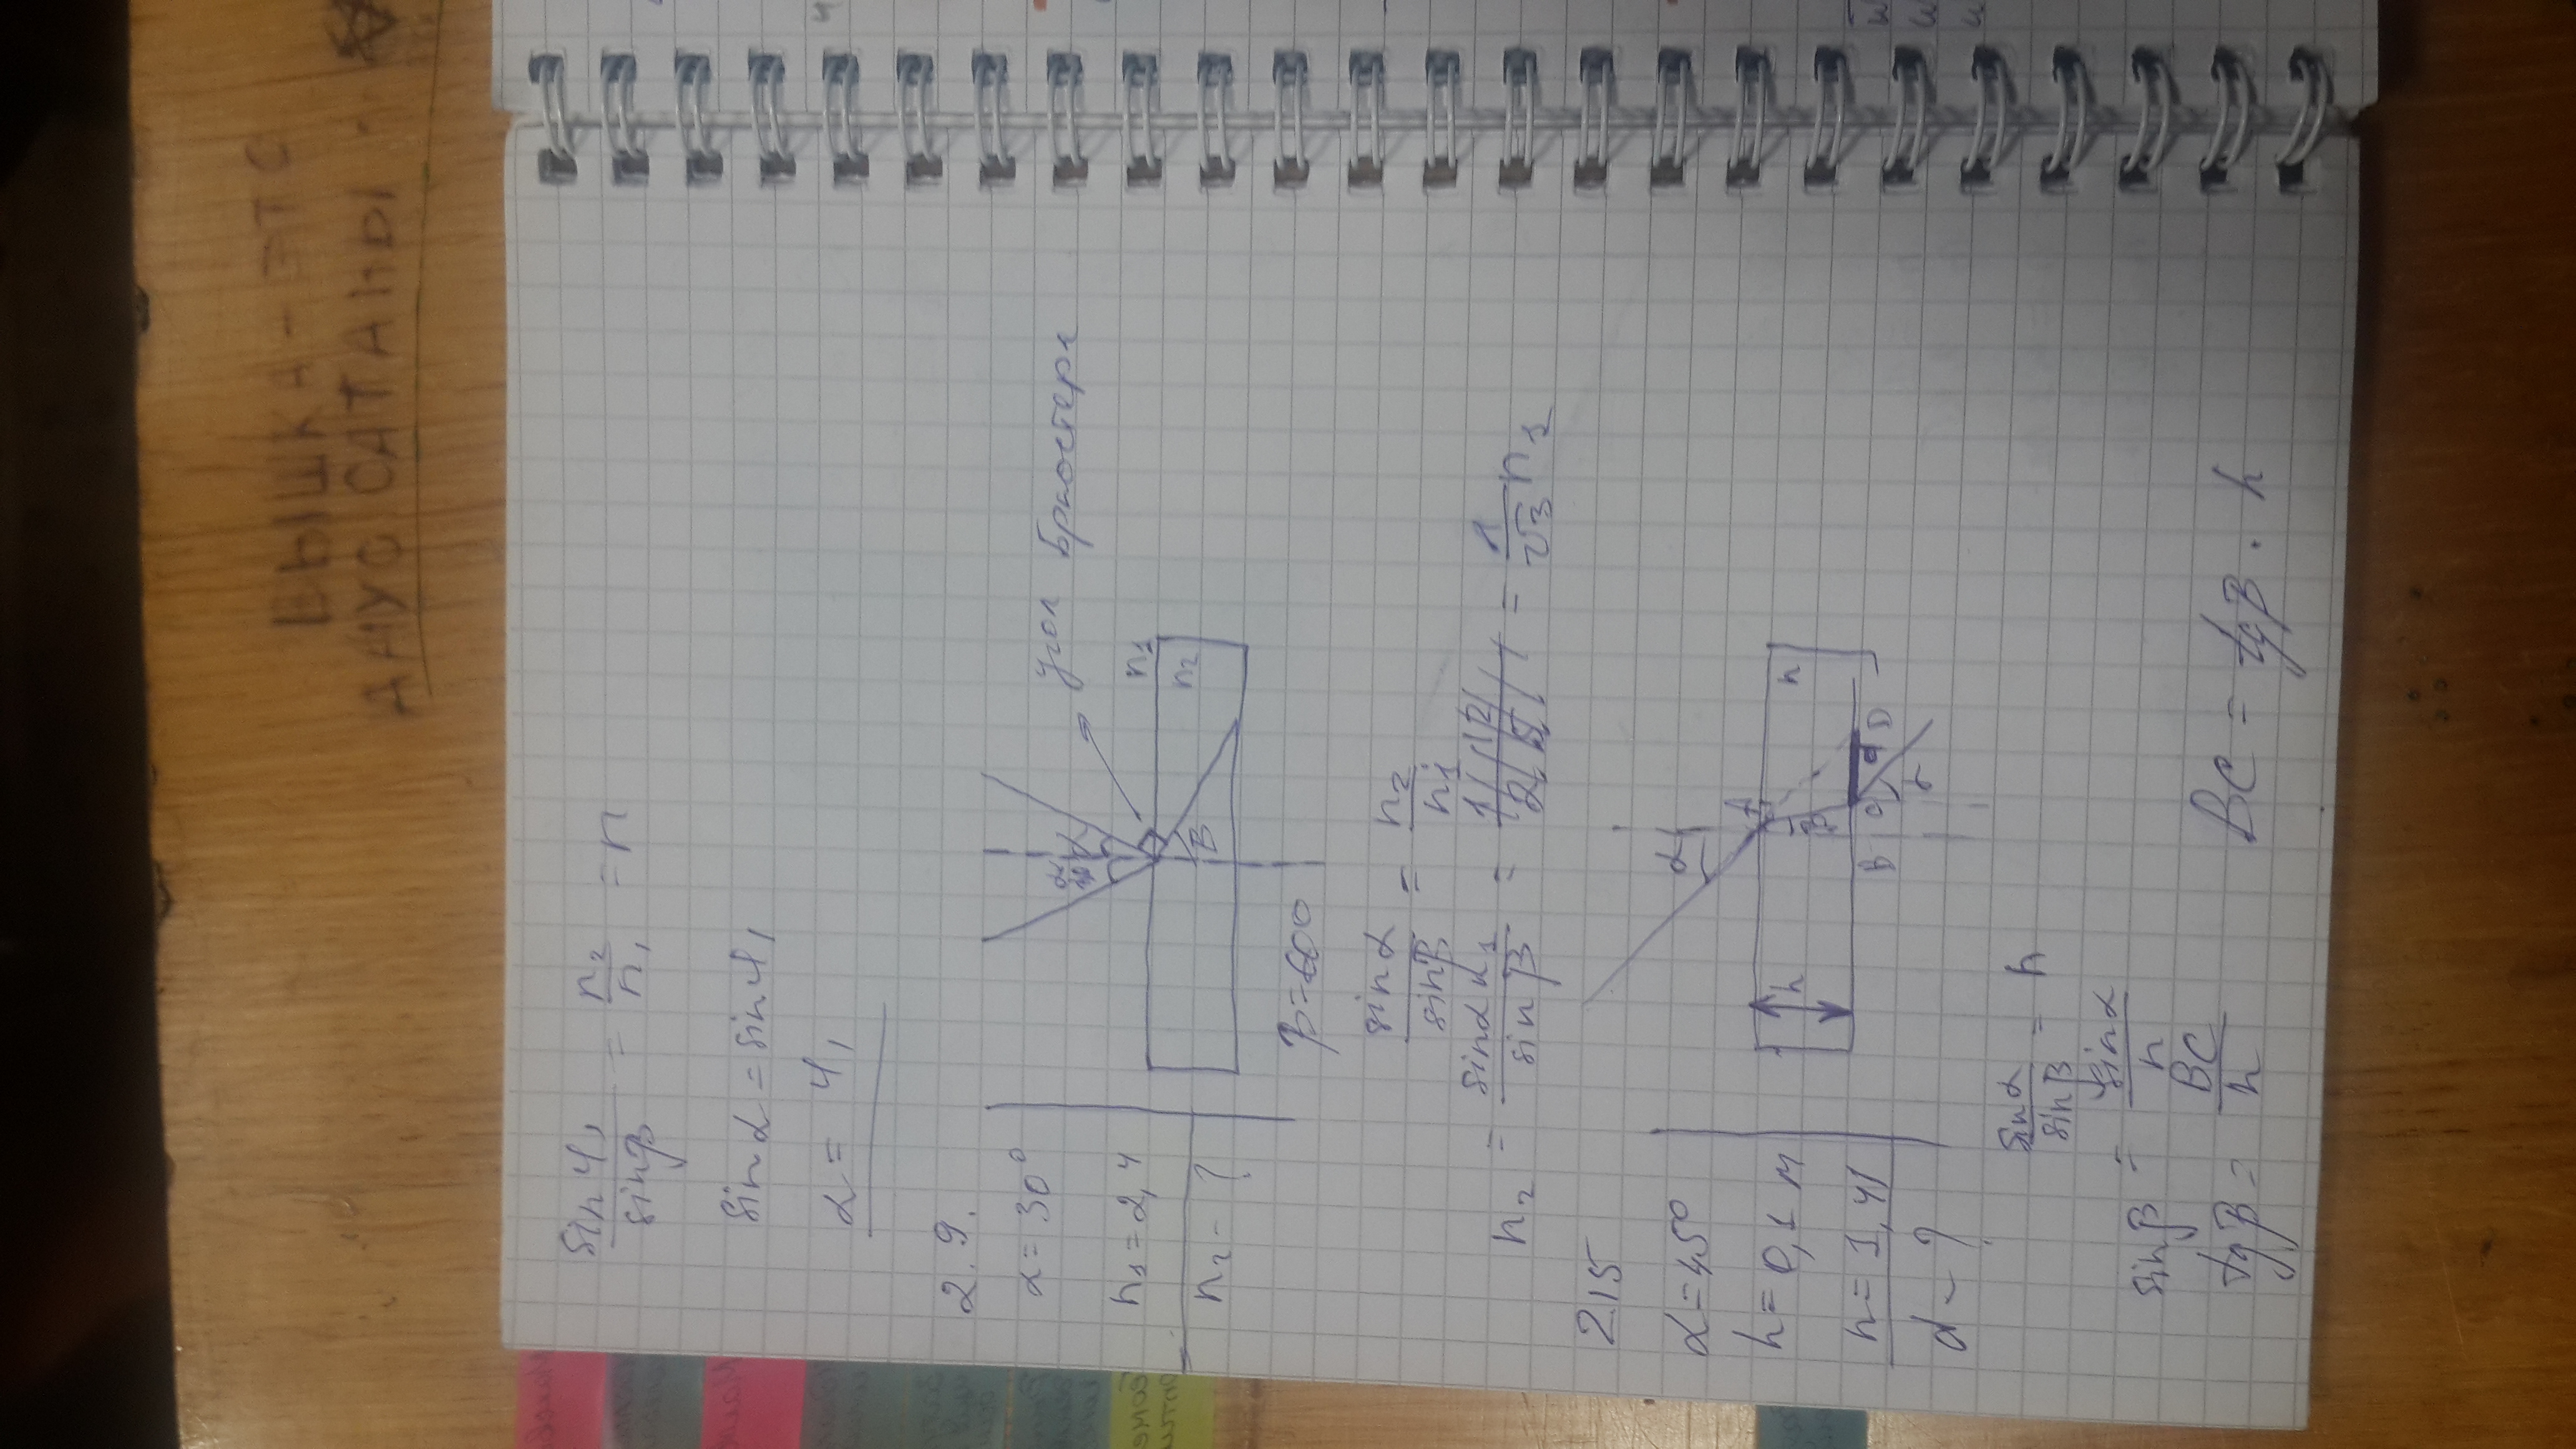 ВЫШКА - ЭТО
АНУС САТАНЫ
sin φ₁ / sin β = n₂ / n₁ = n
sin α = sin φ₁
α = φ₁
2.9.
α = 30°
n₁ = 2,4
n₂ - ?
α
α
угол Брюстера
n₁
n₂
β
β = 60°
sin α / sin β = n₂ / n₁
n₂ = sin α n₁ / sin β = = 1/√3 n₁
2.15
α = 45°
h = 0,1 м
n = 1,41
d - ?
α
A
h
n
β
B C d D
α
sin α / sin β = n
sin β = sin α / n
tg β = BC / h
BC = tg β · h